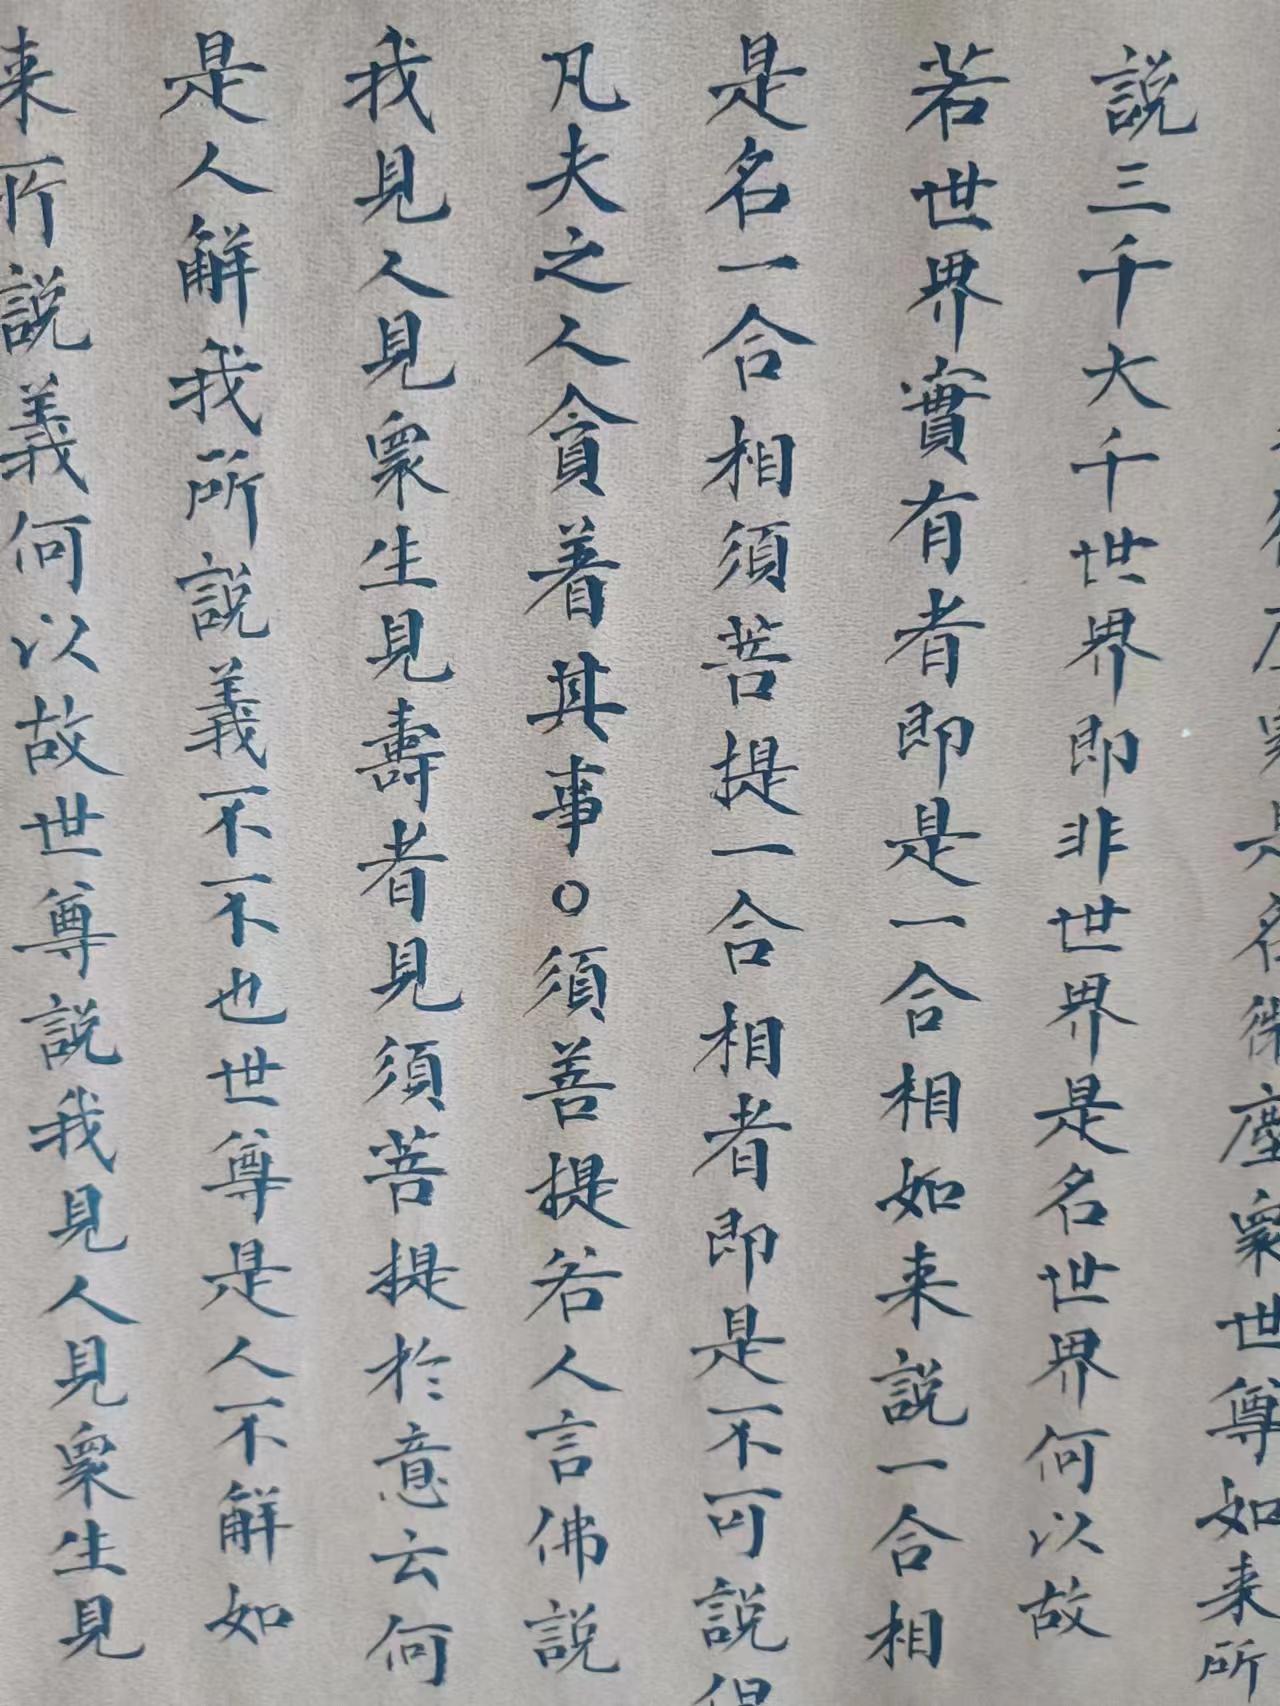 是名微塵衆世尊如来所
説三千大千世界即非世界是名世界何以故
若世界實有者即是一合相如来説一合相
是名一合相須菩提一合相者即是不可説但
凡夫之人貪着其事○須善提若人言佛説
我見人見衆生見壽者見須菩提於意云何
是人解我所説義不不也世尊是人不解如
来所説義何以故世尊説我見人見衆生見